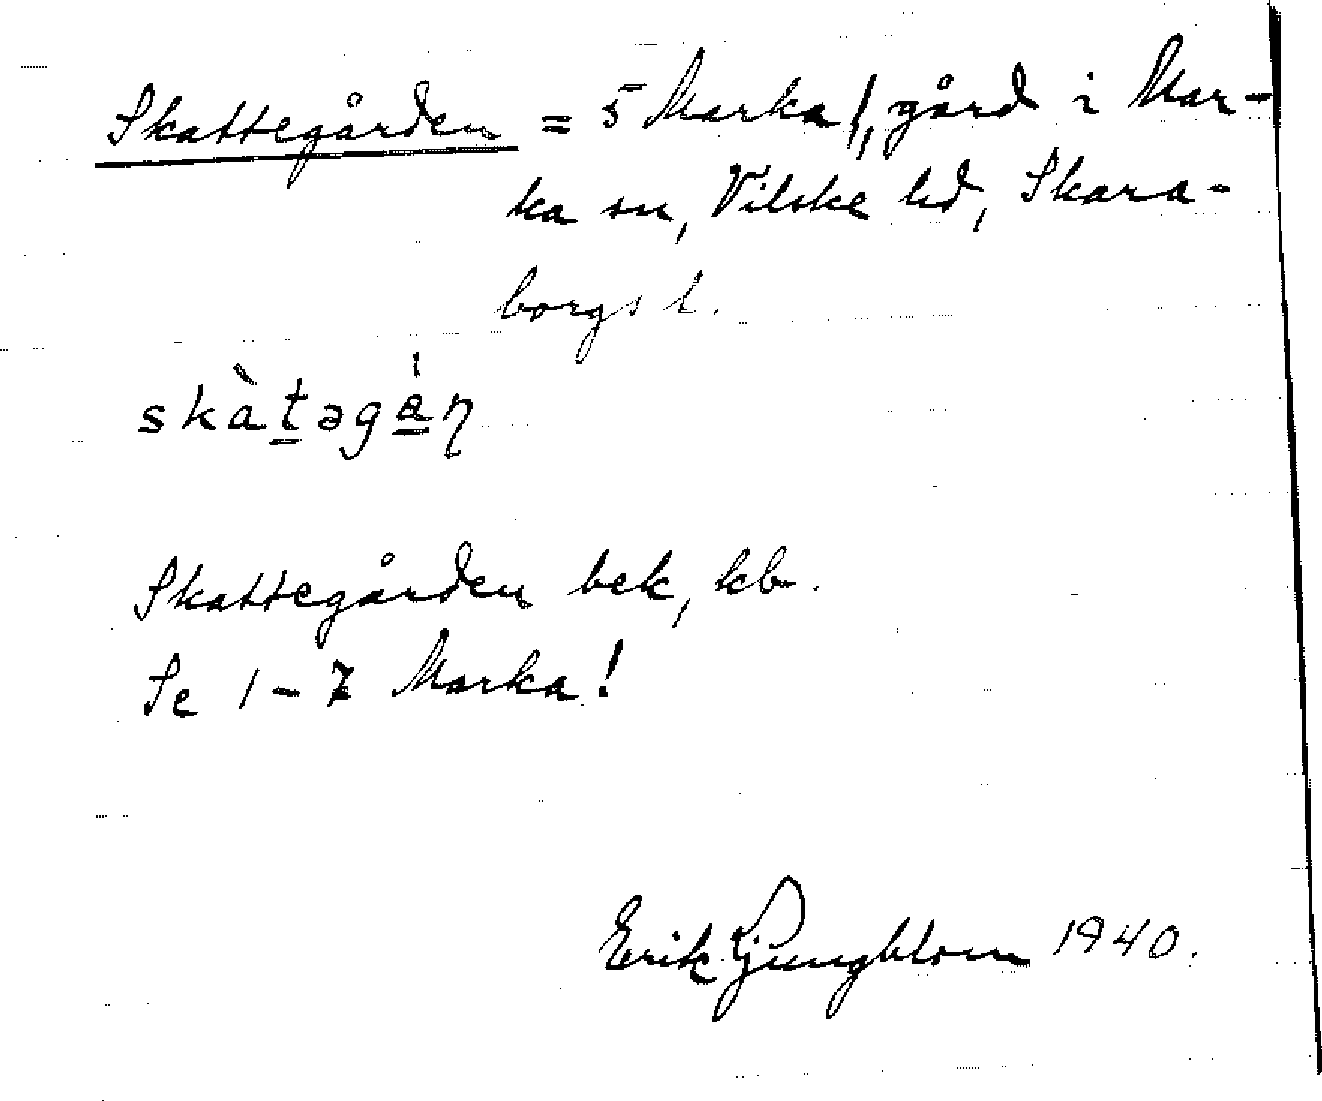 Skattegården = 5 Marka/, gård i Mar-
ka sn, Vilske hd, Skara-
borgs l.
skàt̲əgá̲n̥
Skattegården bek, kb.
Se 1-7 Marka!
Erik Ljungblom 1940.